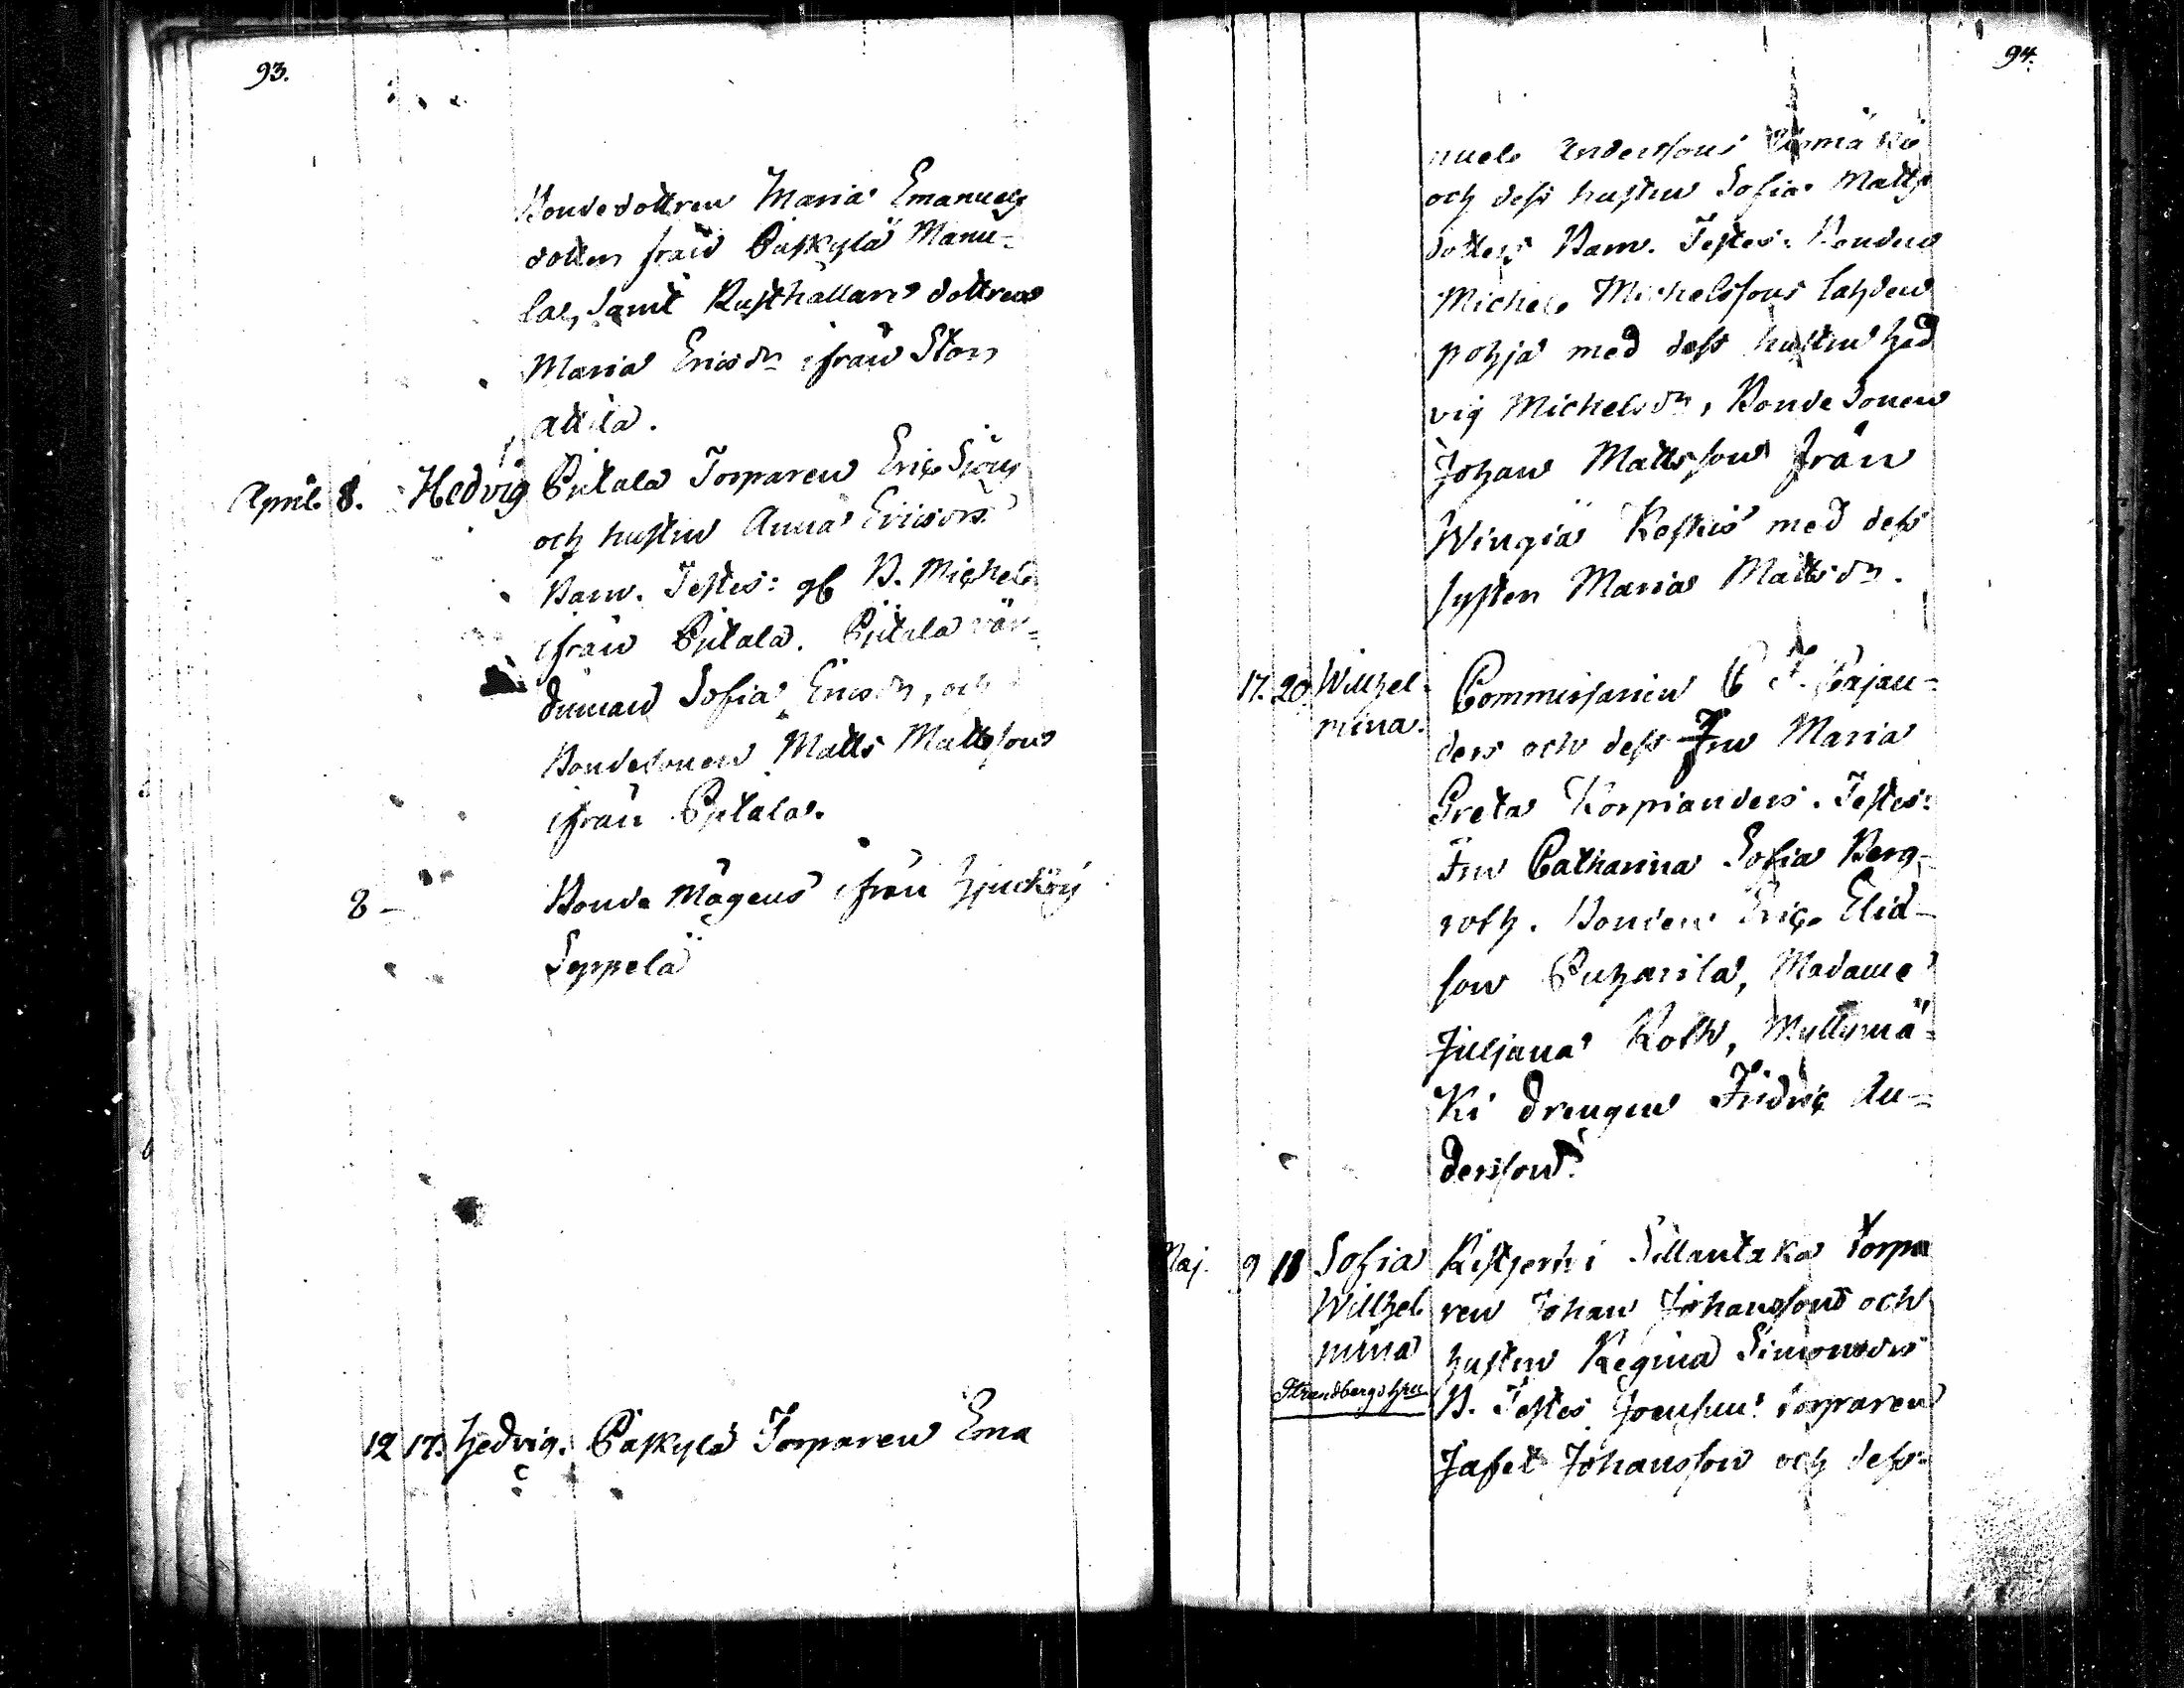 93.
Bondedottren Maria Emanuels
dotter från Paskylä Manu-
la, samt Rusthållare dottren
Maria Ericsdr ifrån Stor
attila.
April. 8. Hedvig Pietala Torparen Erics Sjöns
och hustru Anna Ericsdrs
Barn. Testes: gl B. Michel
ifrån Pietala. Pietala vär-
dinnan Sofia Ericsdr, och
Bondesonen Matts Mattsson
ifrån Pietala.
8 - Bonde Mågens ifrån
Seppelä
12 17. Hedvig. Paskylä Torparen Ema
94.
nuels Anderssons
och dess hustru Sofia Matts
dotters Barn. Testes: Bonden
Michel Michelssons Lahden
pohja med dess hustru Hed
vig Michelsdr, Bonde Sonen
Johan Mattsson från
Wingiä Keskis med dess
syster Maria Mattsdr.
17. 20. Wilhel-
mina.
Commissarien C F. Cajan-
ders och dess Fru Maria
Greta Korpianders. Testes:
Fru Catharina Sofia Berg-
roth. Bonden Eric Elid-
son Puharila, Madame
Juljana Roth, Myllymä-
ki drengen Fridric An-
dersson.
Maj. 9 11 Sofia
Wilhel
mina
Strandbergs hru
Kistjerhi Sillantaka Torpa
ren Johan Johanssons och
hustru Regina Simonsdrs
B. Testes Joensuu Torparen
Jafet Johansson och dess